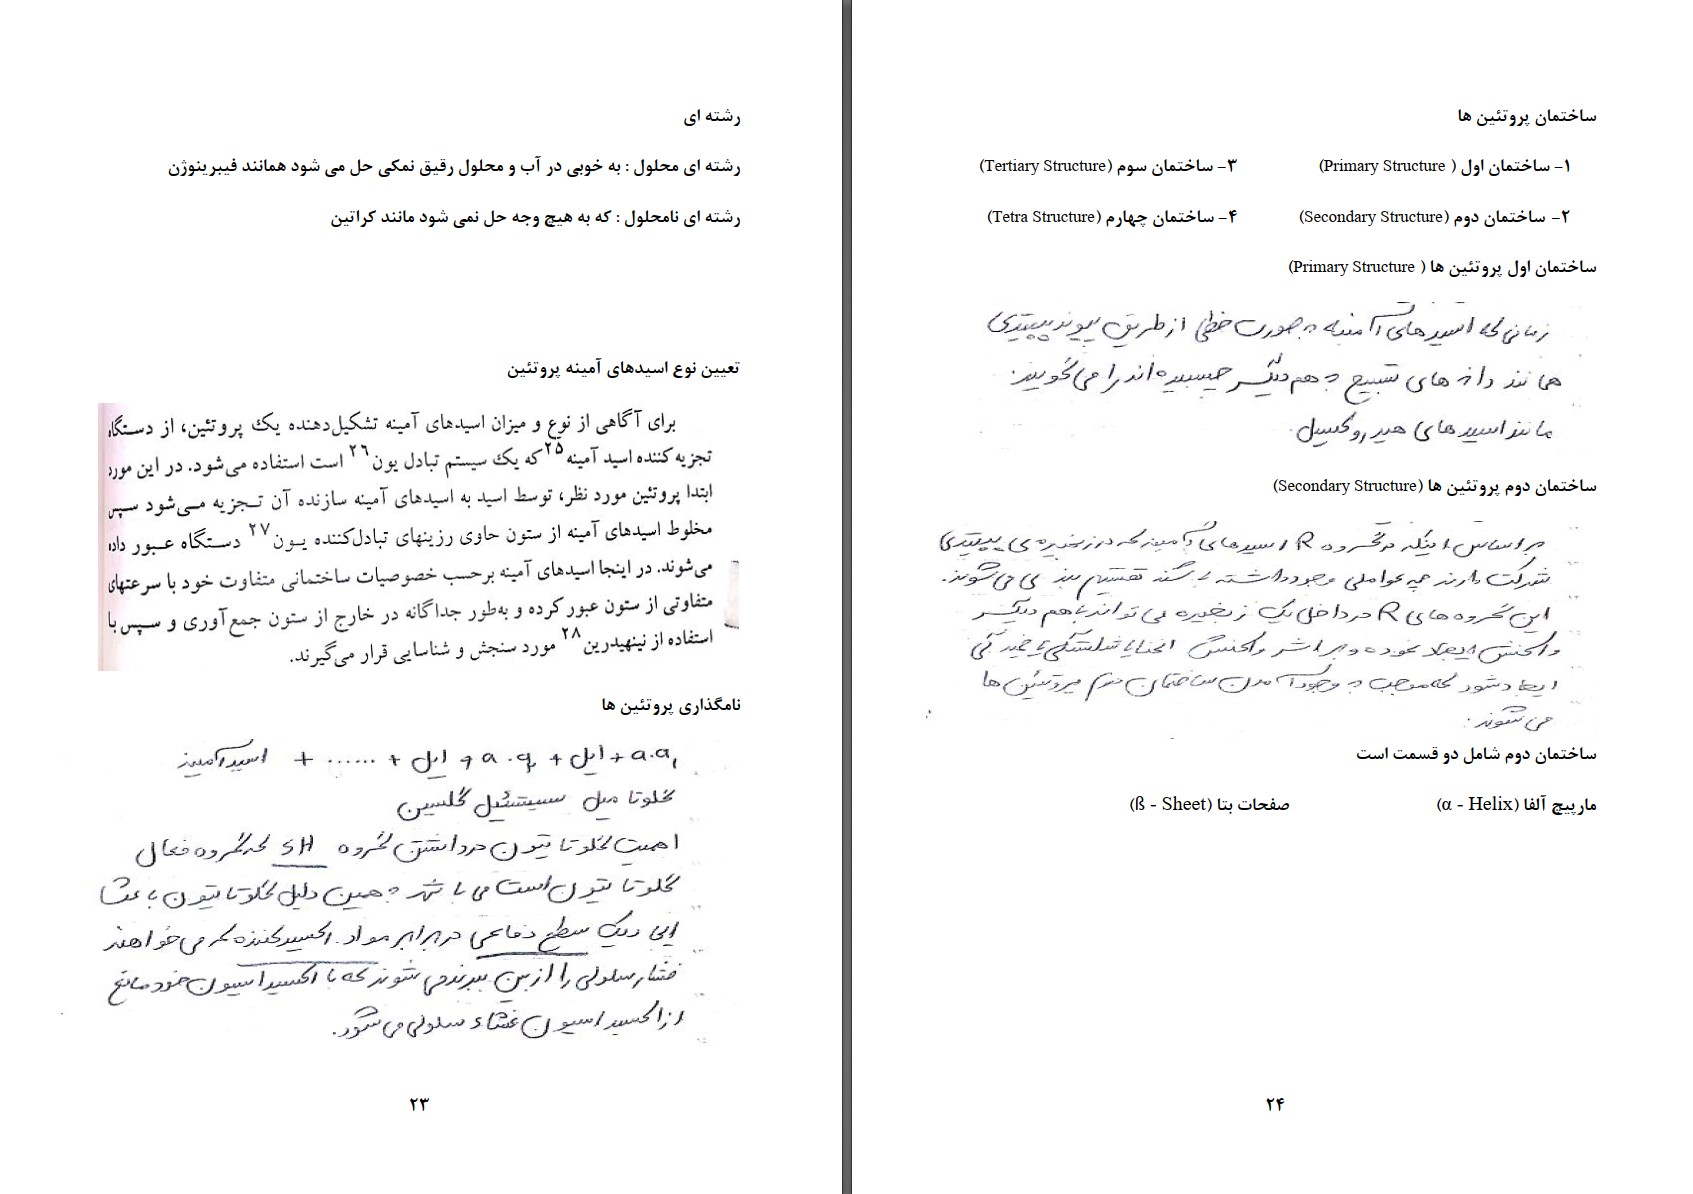 رشته ای
رشته ای محلول : به خوبی در آب و محلول رقیق نمکی حل می شود همانند فیبرینوژن
رشته ای نامحلول : که به هیچ وجه حل نمی شود مانند کراتین
تعیین نوع اسیدهای آمینه پروتئین
برای آگاهی از نوع و میزان اسیدهای آمینه تشکیل‌دهنده یک پروتئین، از دستگاه
تجزیه‌کننده اسید آمینه۲۵ که یک سیستم تبادل یون۲۶ است استفاده می‌شود. در این مورد
ابتدا پروتئین مورد نظر، توسط اسید به اسیدهای آمینه سازنده آن تجزیه می‌شود سپس
مخلوط اسیدهای آمینه از ستون حاوی رزینهای تبادل‌کننده یون۲۷ دستگاه عبور داده
می‌شوند. در اینجا اسیدهای آمینه برحسب خصوصیات ساختمانی متفاوت خود با سرعتهای
متفاوتی از ستون عبور کرده و به‌طور جداگانه در خارج از ستون جمع‌آوری و سپس با
استفاده از نینهیدرین۲۸ مورد سنجش و شناسایی قرار می‌گیرند.
نامگذاری پروتئین ها
a.a₁ + ایل + a.a₂ + ایل + ...... + اسید آمینه
گلوتامیل سیستئیل گلسین
اهمیت گلوتاتیون در داشتن گروه SH که گروه فعال
گلوتاتیون است می باشد به همین دلیل گلوتاتیون باعث
سطح دفاعی در برابر مواد اکسید کننده که می خواهند
فشار سلولی را از بین ببرند می شوند که با اکسیداسیون خود مانع
از اکسیداسیون غشاء سلولی می شود.
۲۳
ساختمان پروتئین ها
۱- ساختمان اول ( Primary Structure) ۳- ساختمان سوم (Tertiary Structure)
۲- ساختمان دوم (Secondary Structure) ۴- ساختمان چهارم (Tetra Structure)
ساختمان اول پروتئین ها ( Primary Structure)
زمانی که اسیدهای آمینه به صورت خطی از طریق پیوند پپتیدی
همانند دانه های تسبیح به هم دیگر چسبیده اند را می گویند.
مانند اسیدهای هیدروکسیل.
ساختمان دوم پروتئین ها (Secondary Structure)
بر اساس اینکه در گروه R اسیدهای آمینه که در زنجیره ی پپتیدی
شرکت دارند چه عواملی وجود داشته باشند تقسیم بندی می شوند.
این گروه های R در داخل یک زنجیره می تواند با هم دیگر
واکنش ایجاد نموده و بر اثر واکنش انحنا یا شکستگی یا خمیدگی
ایجاد شود که موجب به وجود آمدن ساختمان دوم پروتئین ها
می شوند.
ساختمان دوم شامل دو قسمت است
مارپیچ آلفا (α - Helix) صفحات بتا (ß - Sheet)
۲۴